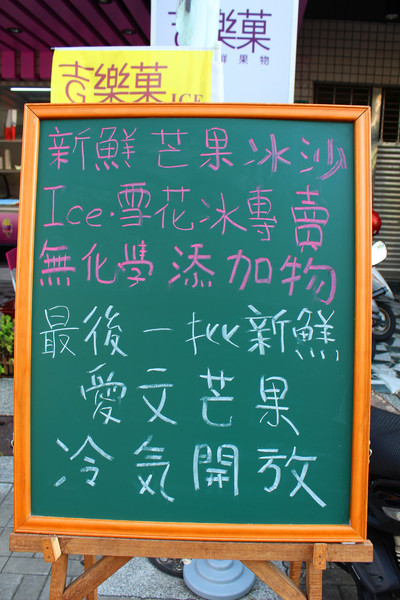 吉樂菓
鮮果物
吉樂菓ICE
新鮮芒果冰沙
Ice·雪花冰專賣
無化學添加物
最後一批新鮮
愛文芒果
冷気開放